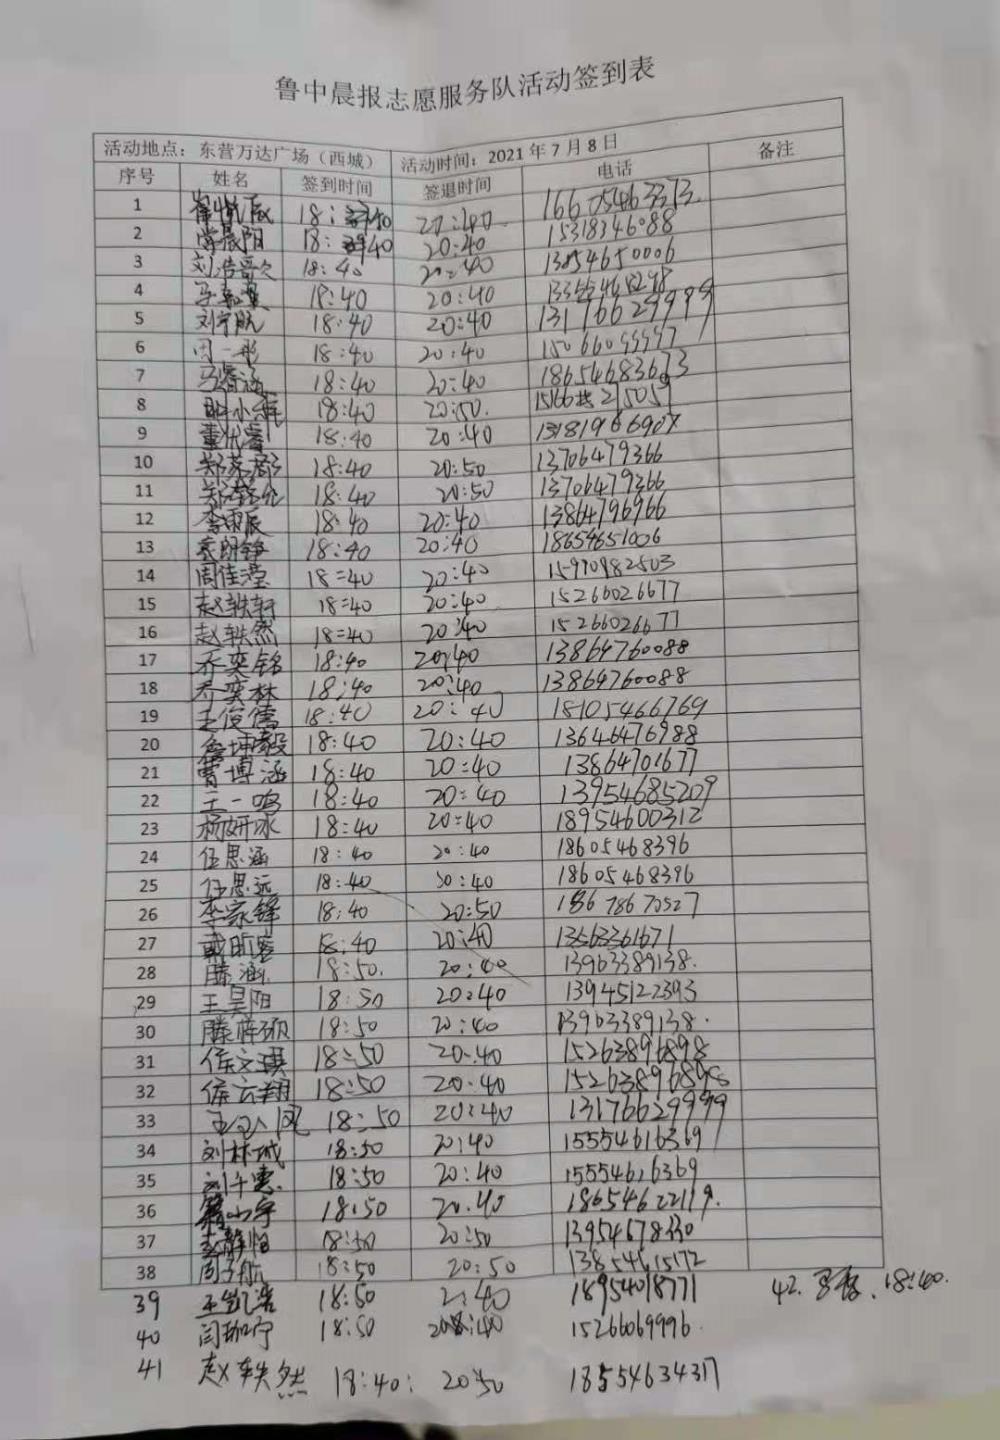 鲁中晨报志愿服务队活动签到表
活动地点：东营万达广场（西城） 活动时间：2021年7月8日
序号 姓名 签到时间 签退时间 电话 备注
1 18:40 20:40 16605463373.
2 常晨阳 18:40 20:40 15318346088
3 刘浩 18:40 20:40 13854650006
4 18:40 20:40
5 刘宇航 18:40 20:40 13176629999
6 周一彤 18:40 20:40
7 马睿涵 18:40 20:40 18654683673
8 18:40 20:50.
9 董优睿 18:40 20:40
10 18:40 20:50 13706479366
11 18:40 20:50 13706479366
12 李雨辰 18:40 20:40 13864796966
13 袁明铮 18:40 20:40 18654651006
14 周佳滢 18=40 20:40 15970982503
15 赵轶轩 18=40 20:40 15266026677
16 赵轶然 18=40 20:40 15266026677
17 乔奕铭 18:40 20:40 13864760088
18 乔奕林 18:40 20:40 13864760088
19 王俊儒 18:40 20:40 18105466769
20 18:40 20:40 13646476988
21 曹博涵 18:40 20:40 13864701677
22 王一鸣 18:40 20:40 13954685209
23 杨妍冰 18:40 20:40 18954600312
24 任思涵 18:40 20:40 18605468396
25 任思远 18:40 20:40 18605468396
26 李家锋 18:40 20:50 18678670527
27 戴昕睿 18:40 20:40 13563361671
28 滕涵 18:50. 20:40 13963389138.
29 王昊阳 18:50 20:40 13945122393
30 18:50 20:40 13963389138.
31 侯文琪 18:50 20:40 15263896898
32 侯云翔 18:50 20:40 15263896898
33 18:50 20:40 13176629999
34 刘林城 18:50 20:40 15554616369
35 18:50 20:40 15554616369
36 18:50 20:40 18654622119.
37 18:50 20:50 13954678330
38 周子航 18:50 20:50 13854615172
39 王凯浩 18:50 20:40 18954018771 42. 18:40.
40 闫珈宁 18:50 20:40 15266069996.
41 赵轶然 18:40: 20:50 18554634317